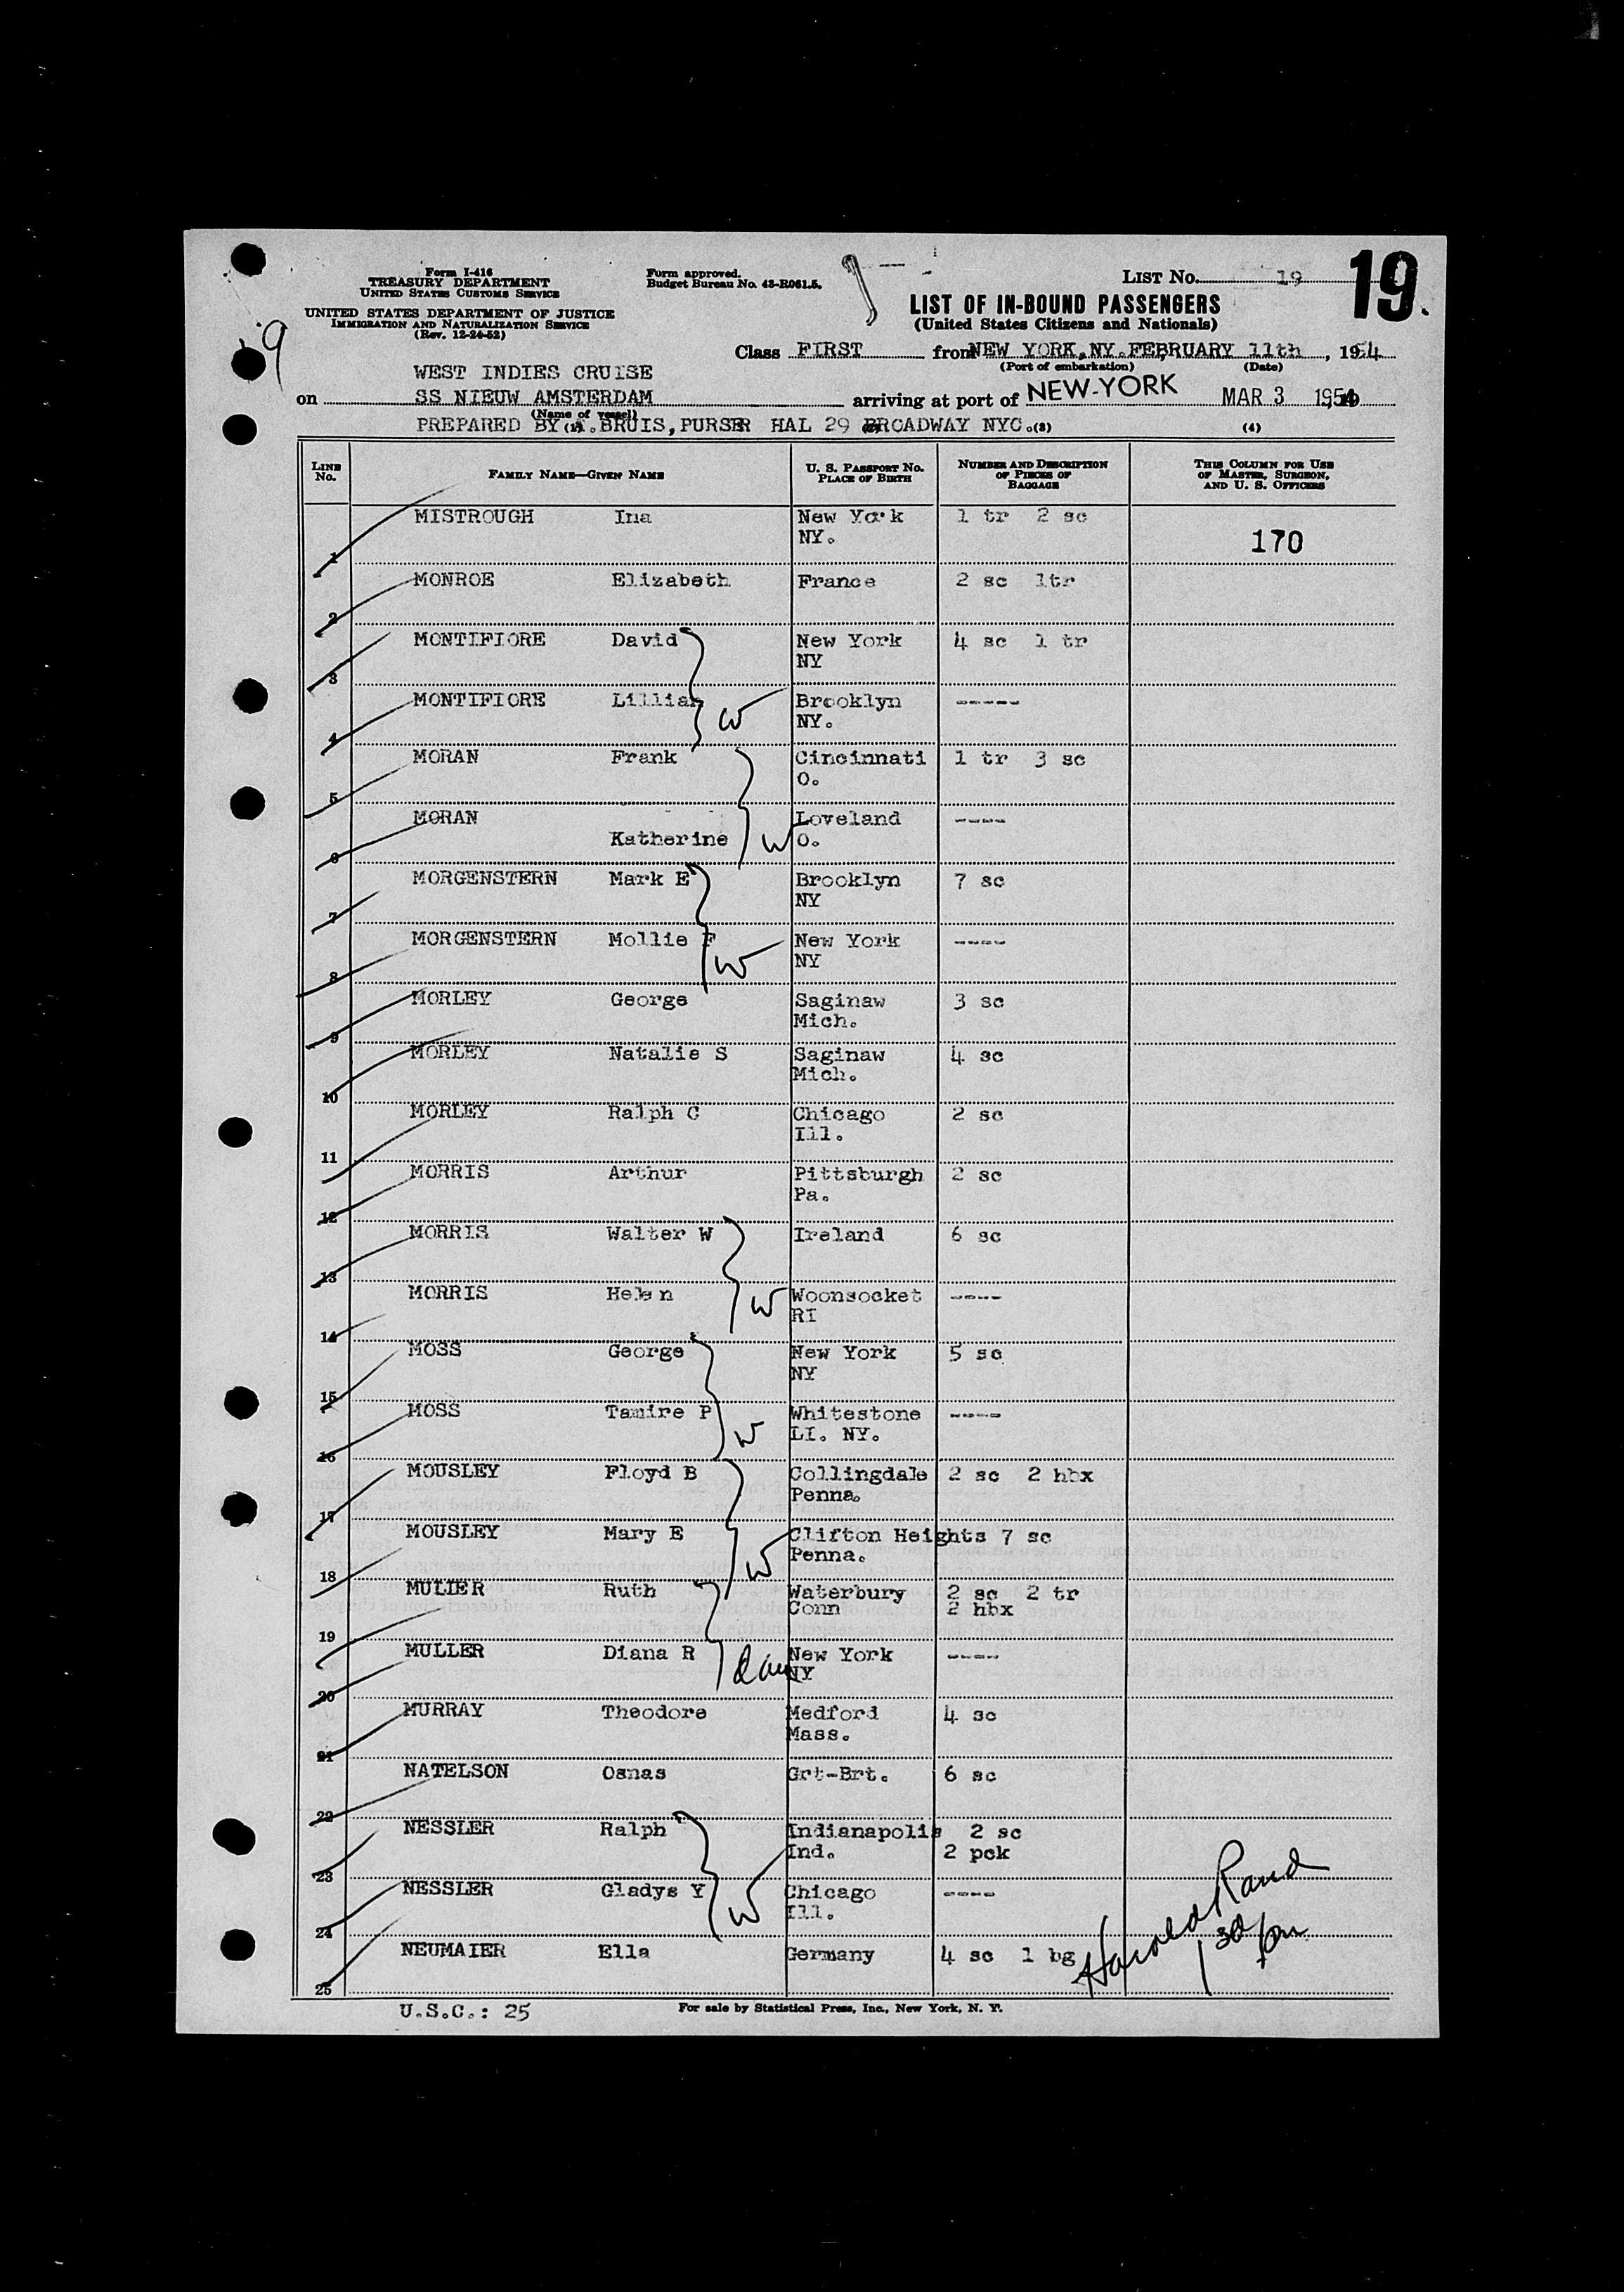 Form I-416
TREASURY DEPARTMENT
UNITED STATES CUSTOMS SERVICE
UNITED STATES DEPARTMENT OF JUSTICE
IMMIGRATION AND NATURALIZATION SERVICE
(Rev. 12-24-52)
Form approved.
Budget Bureau No. 43-R061.5.
LIST No. 19
19.
9
LIST OF IN-BOUND PASSENGERS
(United States Citizens and Nationals)
Class FIRST from NEW YORK, NY. FEBRUARY 11th, 1954
(Port of embarkation) (Date)
WEST INDIES CRUISE
on SS NIEUW AMSTERDAM arriving at port of NEW-YORK MAR 3 1954
(Name of vessel)
PREPARED BY A. BRUIS, PURSER HAL 29 BROADWAY NYC. (3) (4)
LINE No. FAMILY NAME—GIVEN NAME U. S. PASSPORT No. PLACE OF BIRTH NUMBER AND DESCRIPTION OF PIECES OF BAGGAGE THIS COLUMN FOR USE OF MASTER, SURGEON, AND U. S. OFFICERS
1 MISTROUGH Ina New York NY. 1 tr 2 sc 170
2 MONROE Elizabeth France 2 sc 1tr
3 MONTIFIORE David New York NY 4 sc 1 tr
4 MONTIFIORE Lillian W Brooklyn NY. -----
5 MORAN Frank Cincinnati O. 1 tr 3 sc
6 MORAN Katherine W Loveland O. ----
7 MORGENSTERN Mark E Brooklyn NY 7 sc
8 MORGENSTERN Mollie F W New York NY ----
9 MORLEY George Saginaw Mich. 3 sc
10 MORLEY Natalie S Saginaw Mich. 4 sc
11 MORLEY Ralph C Chicago Ill. 2 sc
12 MORRIS Arthur Pittsburgh Pa. 2 sc
13 MORRIS Walter W Ireland 6 sc
14 MORRIS Helen W Woonsocket RI ----
15 MOSS George New York NY 5 sc
16 MOSS Tamire P W Whitestone LI. NY. ----
17 MOUSLEY Floyd B Collingdale Penna. 2 sc 2 hbx
18 MOUSLEY Mary E W Clifton Heights Penna. 7 sc
19 MULLER Ruth Waterbury Conn 2 sc 2 tr 2 hbx
20 MULLER Diana R dau New York NY ----
21 MURRAY Theodore Medford Mass. 4 sc
22 NATELSON Osnas Grt-Brt. 6 sc
23 NESSLER Ralph Indianapolis Ind. 2 sc 2 pck
24 NESSLER Gladys Y W Chicago Ill. ----
25 NEUMAIER Ella Germany 4 sc 1 bg
Harold Rand
130 pm
U.S.C.: 25
For sale by Statistical Press, Inc., New York, N. Y.